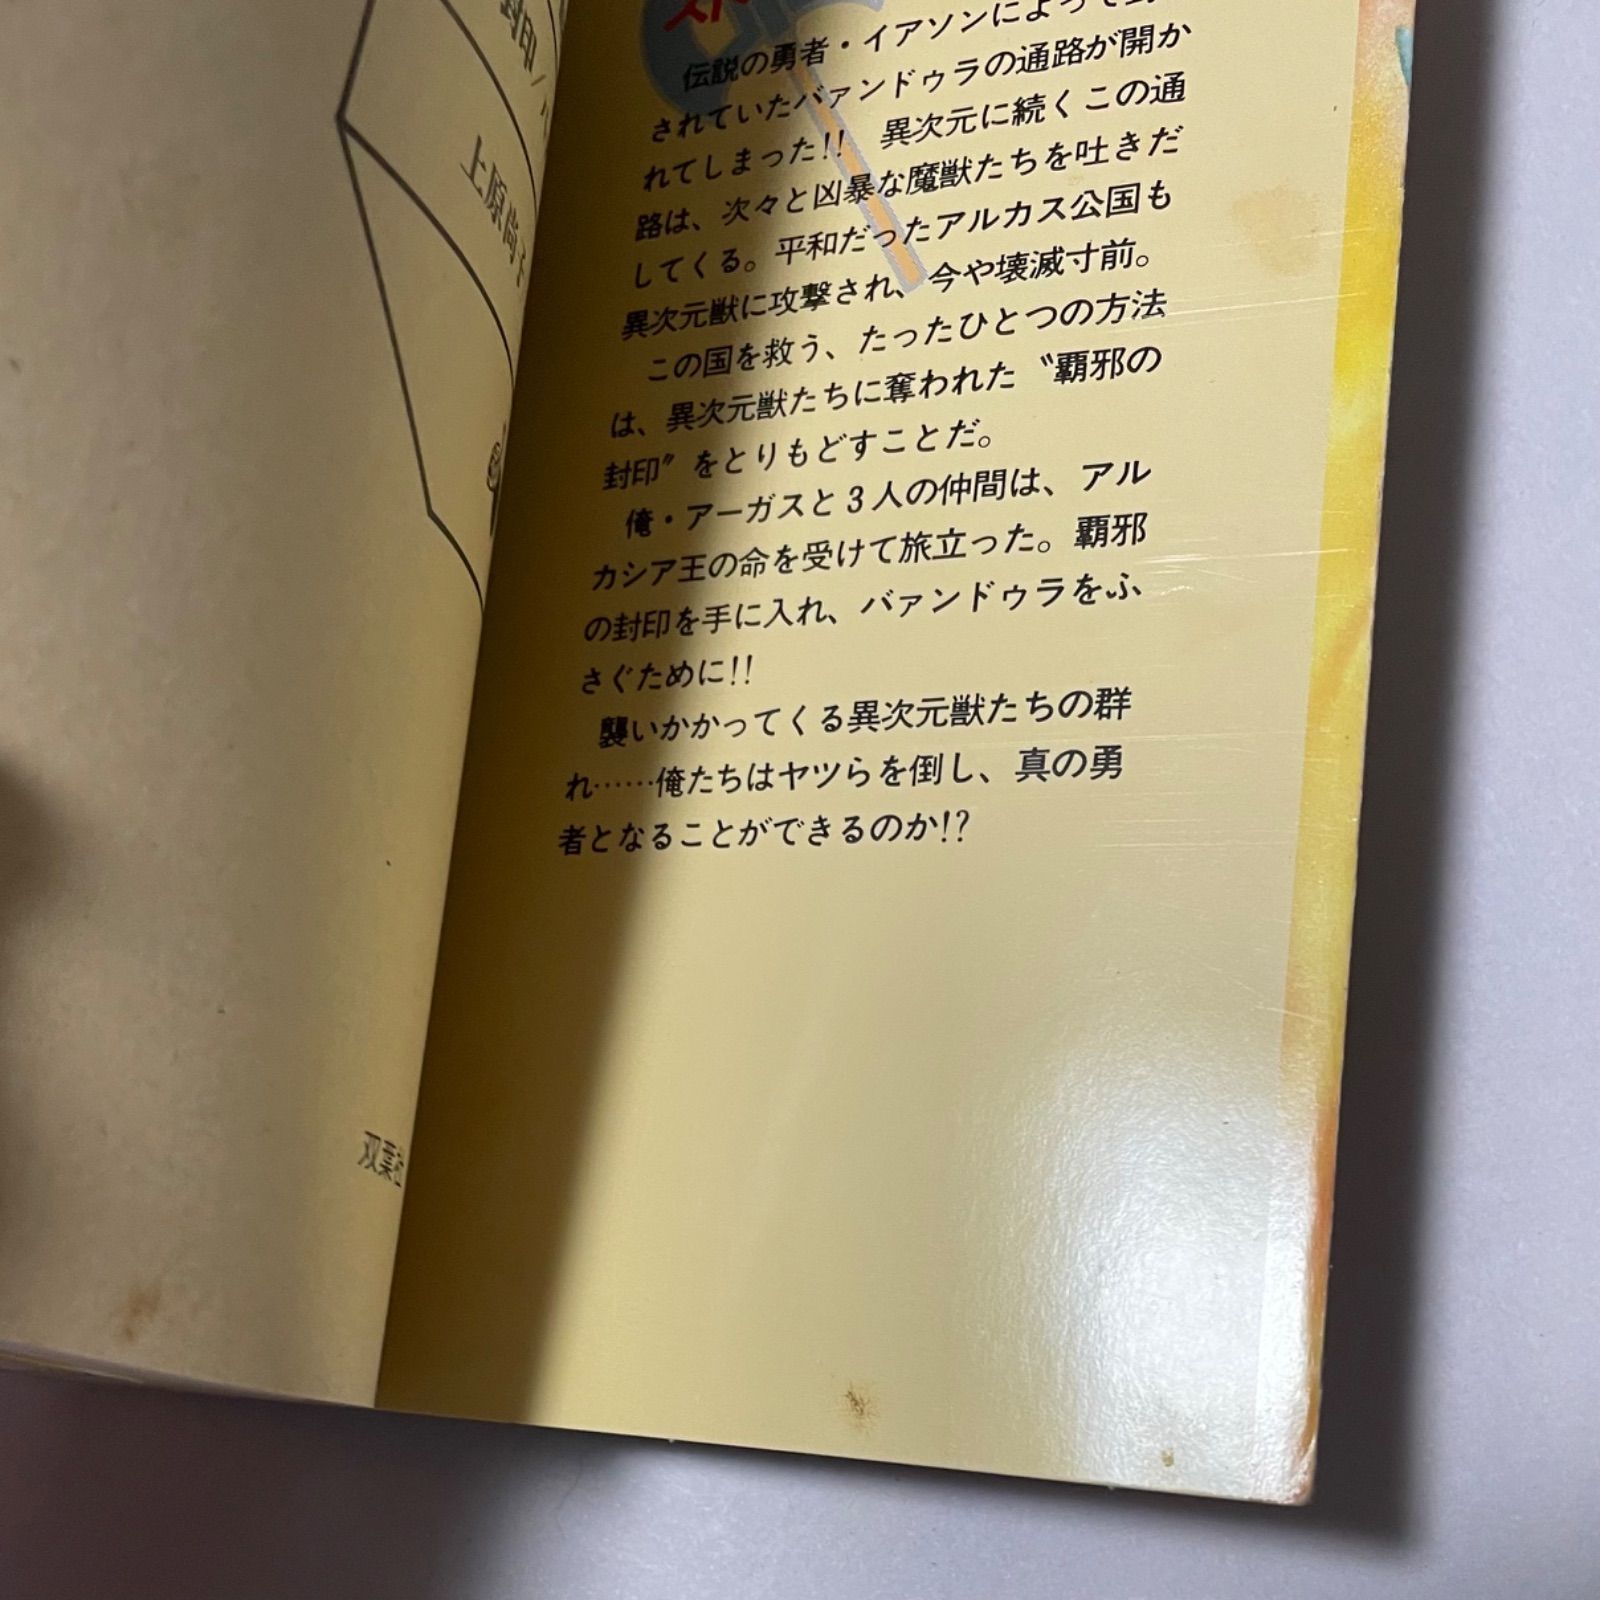 封印
上原尚子
双葉社
スト
伝説の勇者・イアソンによって
されていたバァンドゥラの通路が開か
れてしまった!! 異次元に続くこの通
路は、次々と凶暴な魔獣たちを吐きだ
してくる。平和だったアルカス公国も
異次元獣に攻撃され、今や壊滅寸前。
この国を救う、たったひとつの方法
は、異次元獣たちに奪われた〝覇邪の
封印〟をとりもどすことだ。
俺・アーガスと3人の仲間は、アル
カシア王の命を受けて旅立った。覇邪
の封印を手に入れ、バァンドゥラをふ
さぐために!!
襲いかかってくる異次元獣たちの群
れ……俺たちはヤツらを倒し、真の勇
者となることができるのか!?